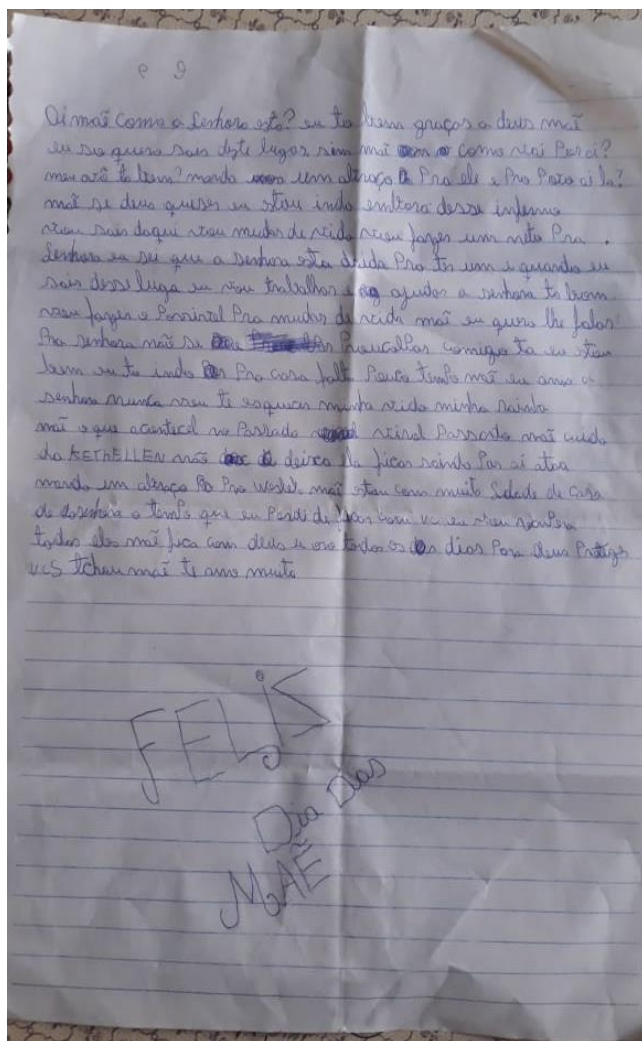 Oi maẽ como a senhora esta? eu to bem graças a deus maẽ
eu so quero sair deste lugar sim maẽ e como vai Por ai?
meu avô ta bem? manda um abraço Pra ele e Pro Povo ai ta?
maẽ se deus quiser eu estou indo embora desse inferno
vou sair daqui vou mudar de vida vou fazer um neto Pra
Senhora eu sei que a senhora esta doida Pra ter um e quando eu
sair desse luga eu vou trabalhar e ajudar a senhora ta bom
vou fazer o Possivel Pra mudar de vida maẽ eu quero lhe falar
Pra senhora não se Preucalpar comigo ta eu estou
bem eu to indo Pra casa falta Pouco tempo maẽ eu amo a
senhora nunca vou te esquecer minha vida minha rainha
maẽ o que aconteceu no Passado maẽ cuida
da KETHELLEN não deixa ela ficar saindo Por ai atoa
manda um abraço Pro maẽ estou com muita Sdade de casa
da senhora o tempo que eu Perdi de com vc eu vou
todos eles maẽ fica com deus e oro todos os dias Para deus Proteger
vcs tchau maẽ te amo muito
FELIS
Dia Das
MAẼ